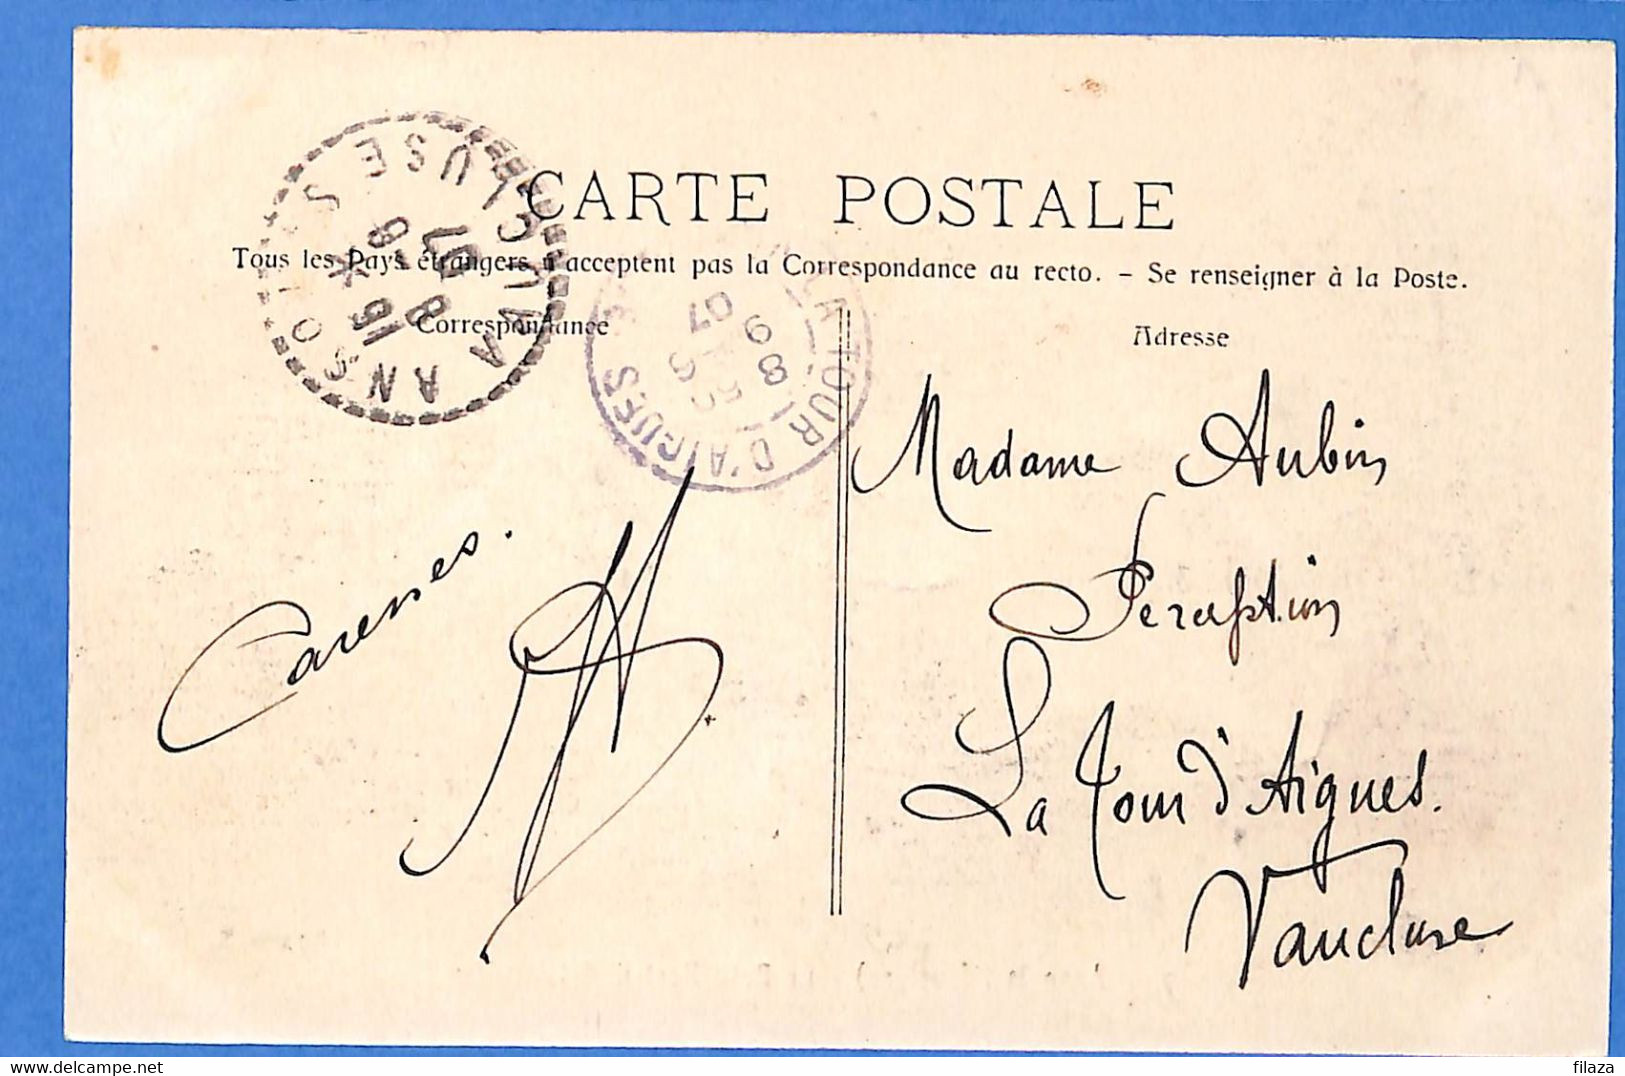 CARTE POSTALE
Tous les Pays étrangers n'acceptent pas la Correspondance au recto. – Se renseigner à la Poste.
Correspondance
Adresse
ANSOUIS VAUCLUSE
16 * 6
8 07
LA TOUR D'AIGUES
8 9
07
Madame Aubin
Perception
La Tour d'Aigues.
Vaucluse
Caresses.
filaza